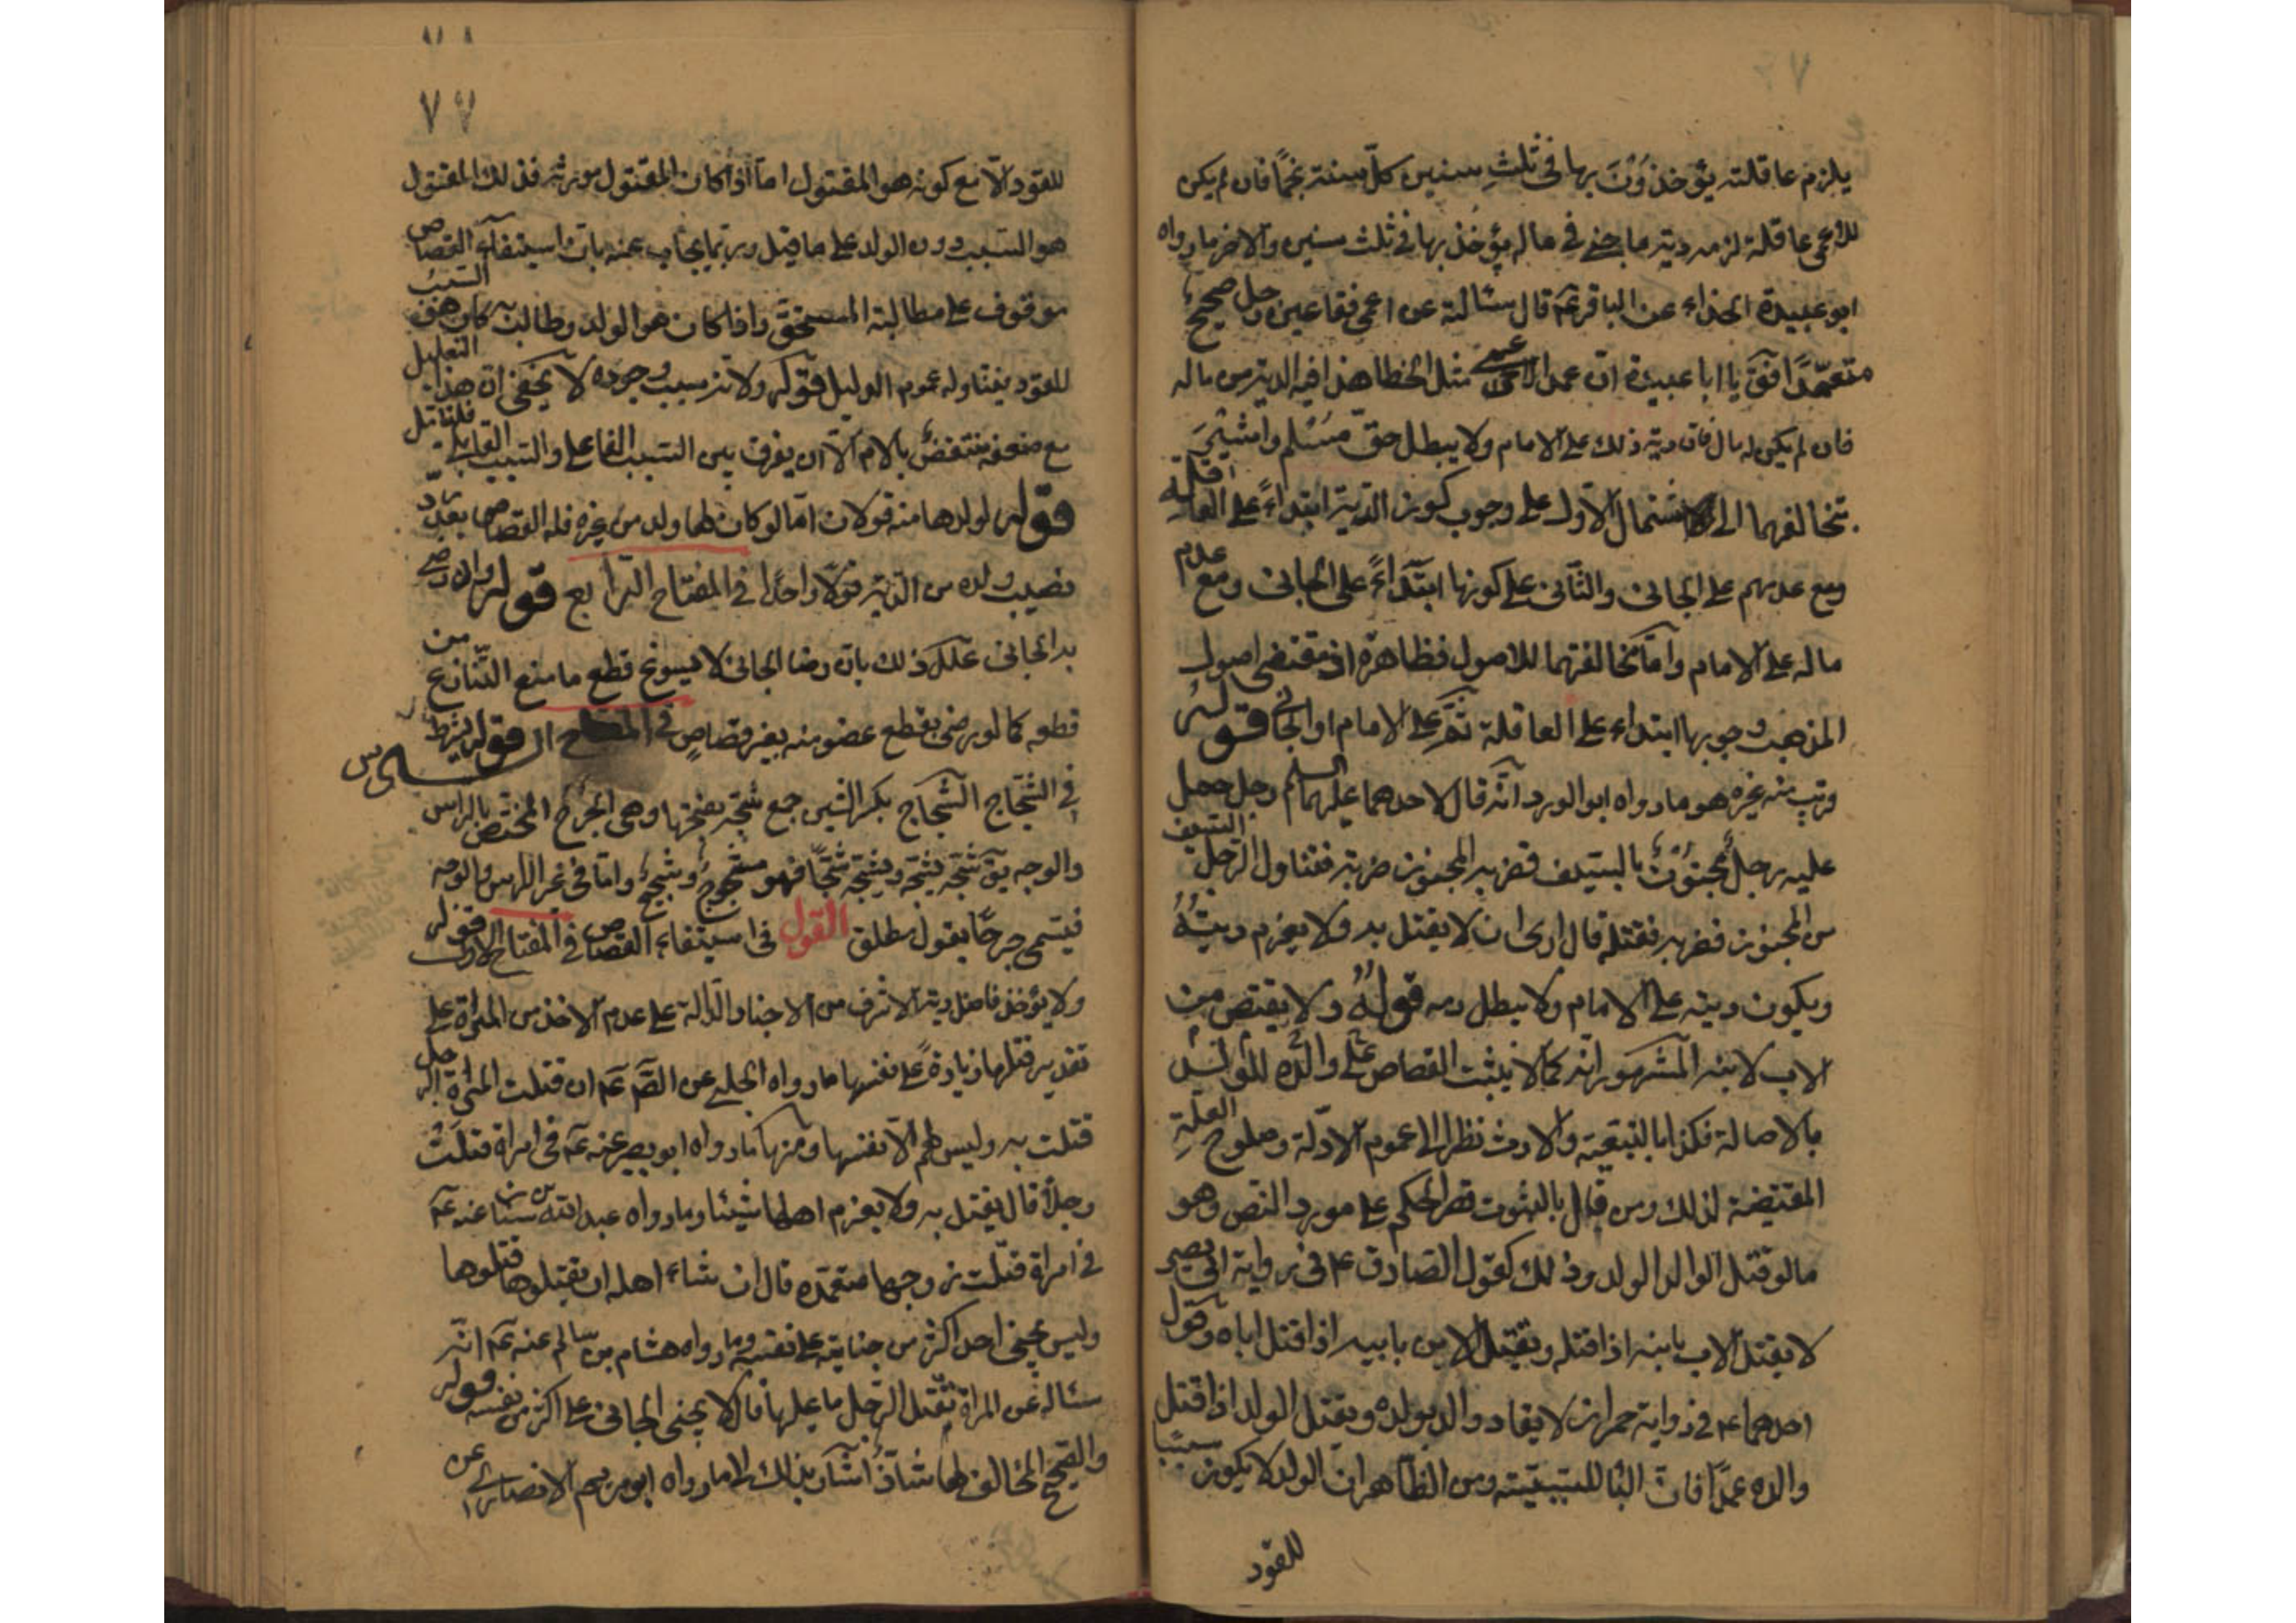 يلزم عاقلته يؤخذون بها في ثلث سنين كلّ سنة نجمًا فان لم يكن
للاعمى عاقلة لزمه دية ما جنى في ماله يؤخذ بها في ثلث سنين والاخر ما رواه
ابو عبيدة الحذاء عن الباقر عم قال سئالته عن اعمى فقا عين رجل صحيح
متعمّدًا فقٓ يا ابا عبيدة انّ عمد الاعمى مثل الخطا هذا فيه الدية من ماله
فان لم يكن له مال فان دية ذلك على الامام ولا يبطل حقّ مسلم وا
تخالفهما الى لاشتمال الاول على وجوب كون الدية ابتداءً على العاقلة
ومع عدمهم على الجاني والثاني على كونها ابتداءً على الجاني ومع عدم
ماله على الامام وامّا مخالفتهما للاصول فظاهرة اذ مقتضى اصول
المذهب وجوبها ابتداء على العاقلة ثمّ على الامام او الجاني قوله
قريب منه غيره هو ما رواه ابو الورد انّه قال لاحدهما عليهما السلم رجل حمل
عليه رجل مجنون بالسيف فضربه المجنون ضربة فتناول الرجل السيف
من المجنون فضربه فقتله قال ارى ان لا يقتل به ولا يغرم ديته
ويكون ديته على الامام ولا يبطل دمه قوله ولا يقتص من
الاب لابنه المشهور انّه كما لا يثبت القصاص على والده للولد
بالاصالة فكذا بالتبعية والارث نظرا الى عموم الادلة وصلوح العلّة
المقتضية لذلك ومن قال بالثبوت قصر الحكم على مورد النص وهو
ما لو قتل الوالد الولد وذلك كقول الصادق ع في رواية ابي بصير
لا يقتل الاب بابنه اذا قتله ويقتل الابن بابيه اذا قتل اباه وكقول
احدهما ع في رواية حمران لا يقاد والد بولده ويقتل الولد اذا قتل
والده عمدًا فان البا للسببيّة ومن الظاهر ان الولد لا يكون سببًا
للقود
٧٧
للقود الّا مع كونه هو المقتول امّا اذا كان المقتول مورثه فذلك المقتول
هو السبب دون الولد على ما قيل وربّما يجاب عنه بانّ استيفآء القصاص
موقوف على مطالبة المستحقّ واذا كان هو الولد وطالب كان هو السبب
للقود يفتناوله عموم الدليل قوله ولانّه سبب وجوده لا يخفى انّ هذا التعليل
مع ضعفه منتقض بالام الّا ان يفرق بين السبب الفاعلي والسبب القابلي فليتامل
قوله لولدها منه قولان امّا لو كان لها ولد من غيره فله القصاص بعد ردّ
نصيب ولده من الدية قولًا واحدًا في المفتاح الرابع قوله وان رضي
به الجاني علّل ذلك بان رضا الجاني لا يسوغ قطع ما منع الشارع من
قطعه كما لو رضي بقطع عضو منه بغير قصاص في المفتاح ال قوله يشترط
في الشجاج الشجاج بكسر الشين جمع شجّة بفتحها وهي الجرح المختص بالراس
والوجه يقٓ شجّه يشجّه ويشجّه شجًّا فهو مشجوج وشجيج وامّا في غير الراس والوجه
فيسمى جرحًا بقول مطلق القول في استيفاء القصاص في المفتاح الاول قوله
ولا يؤخذ فاضل دية الاشرف من الاخبار الدّالة على عدم الاخذ من المراة على
تقدير قتلها زيادةً على نفسها ما رواه الحلبي عن الصٓم عم ان قتلت المراة الرجل
قتلت به وليس لهم الّا نفسها ومنها ما رواه ابو بصير عنه عم في امراة قتلت
رجلًا قال يقتل به ولا يغرم اهلها شيئا وما رواه عبد الله بن سنان عنه عم
في امراة قتلت زوجها متعمّدة قال ان شاء اهله ان يقتلوها قتلوها
وليس يجنى احد اكثر من جنايته على نفسه وما رواه هشام بن سالم عنه عم انّه
سئاله عن المراة تقتل الرّجل ما عليها قال لا يجنى الجاني على اكثر من نفسه قوله
والصحيح المخالف لها شاذّ اشار بذلك الى ما رواه ابو مريم الانصاري عن